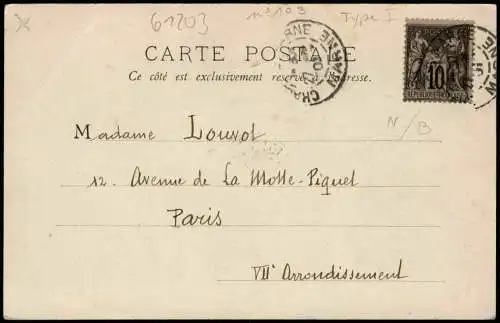 61203 n° 103 Type I
CARTE POSTALE
Ce côté est exclusivement réservé à l'adresse.
MARNE
10
RÉPUBLIQUE FRANÇAISE
N/B
Madame Louvot
12. Avenue de La Motte-Piquet
Paris
VIIe Arrondissement